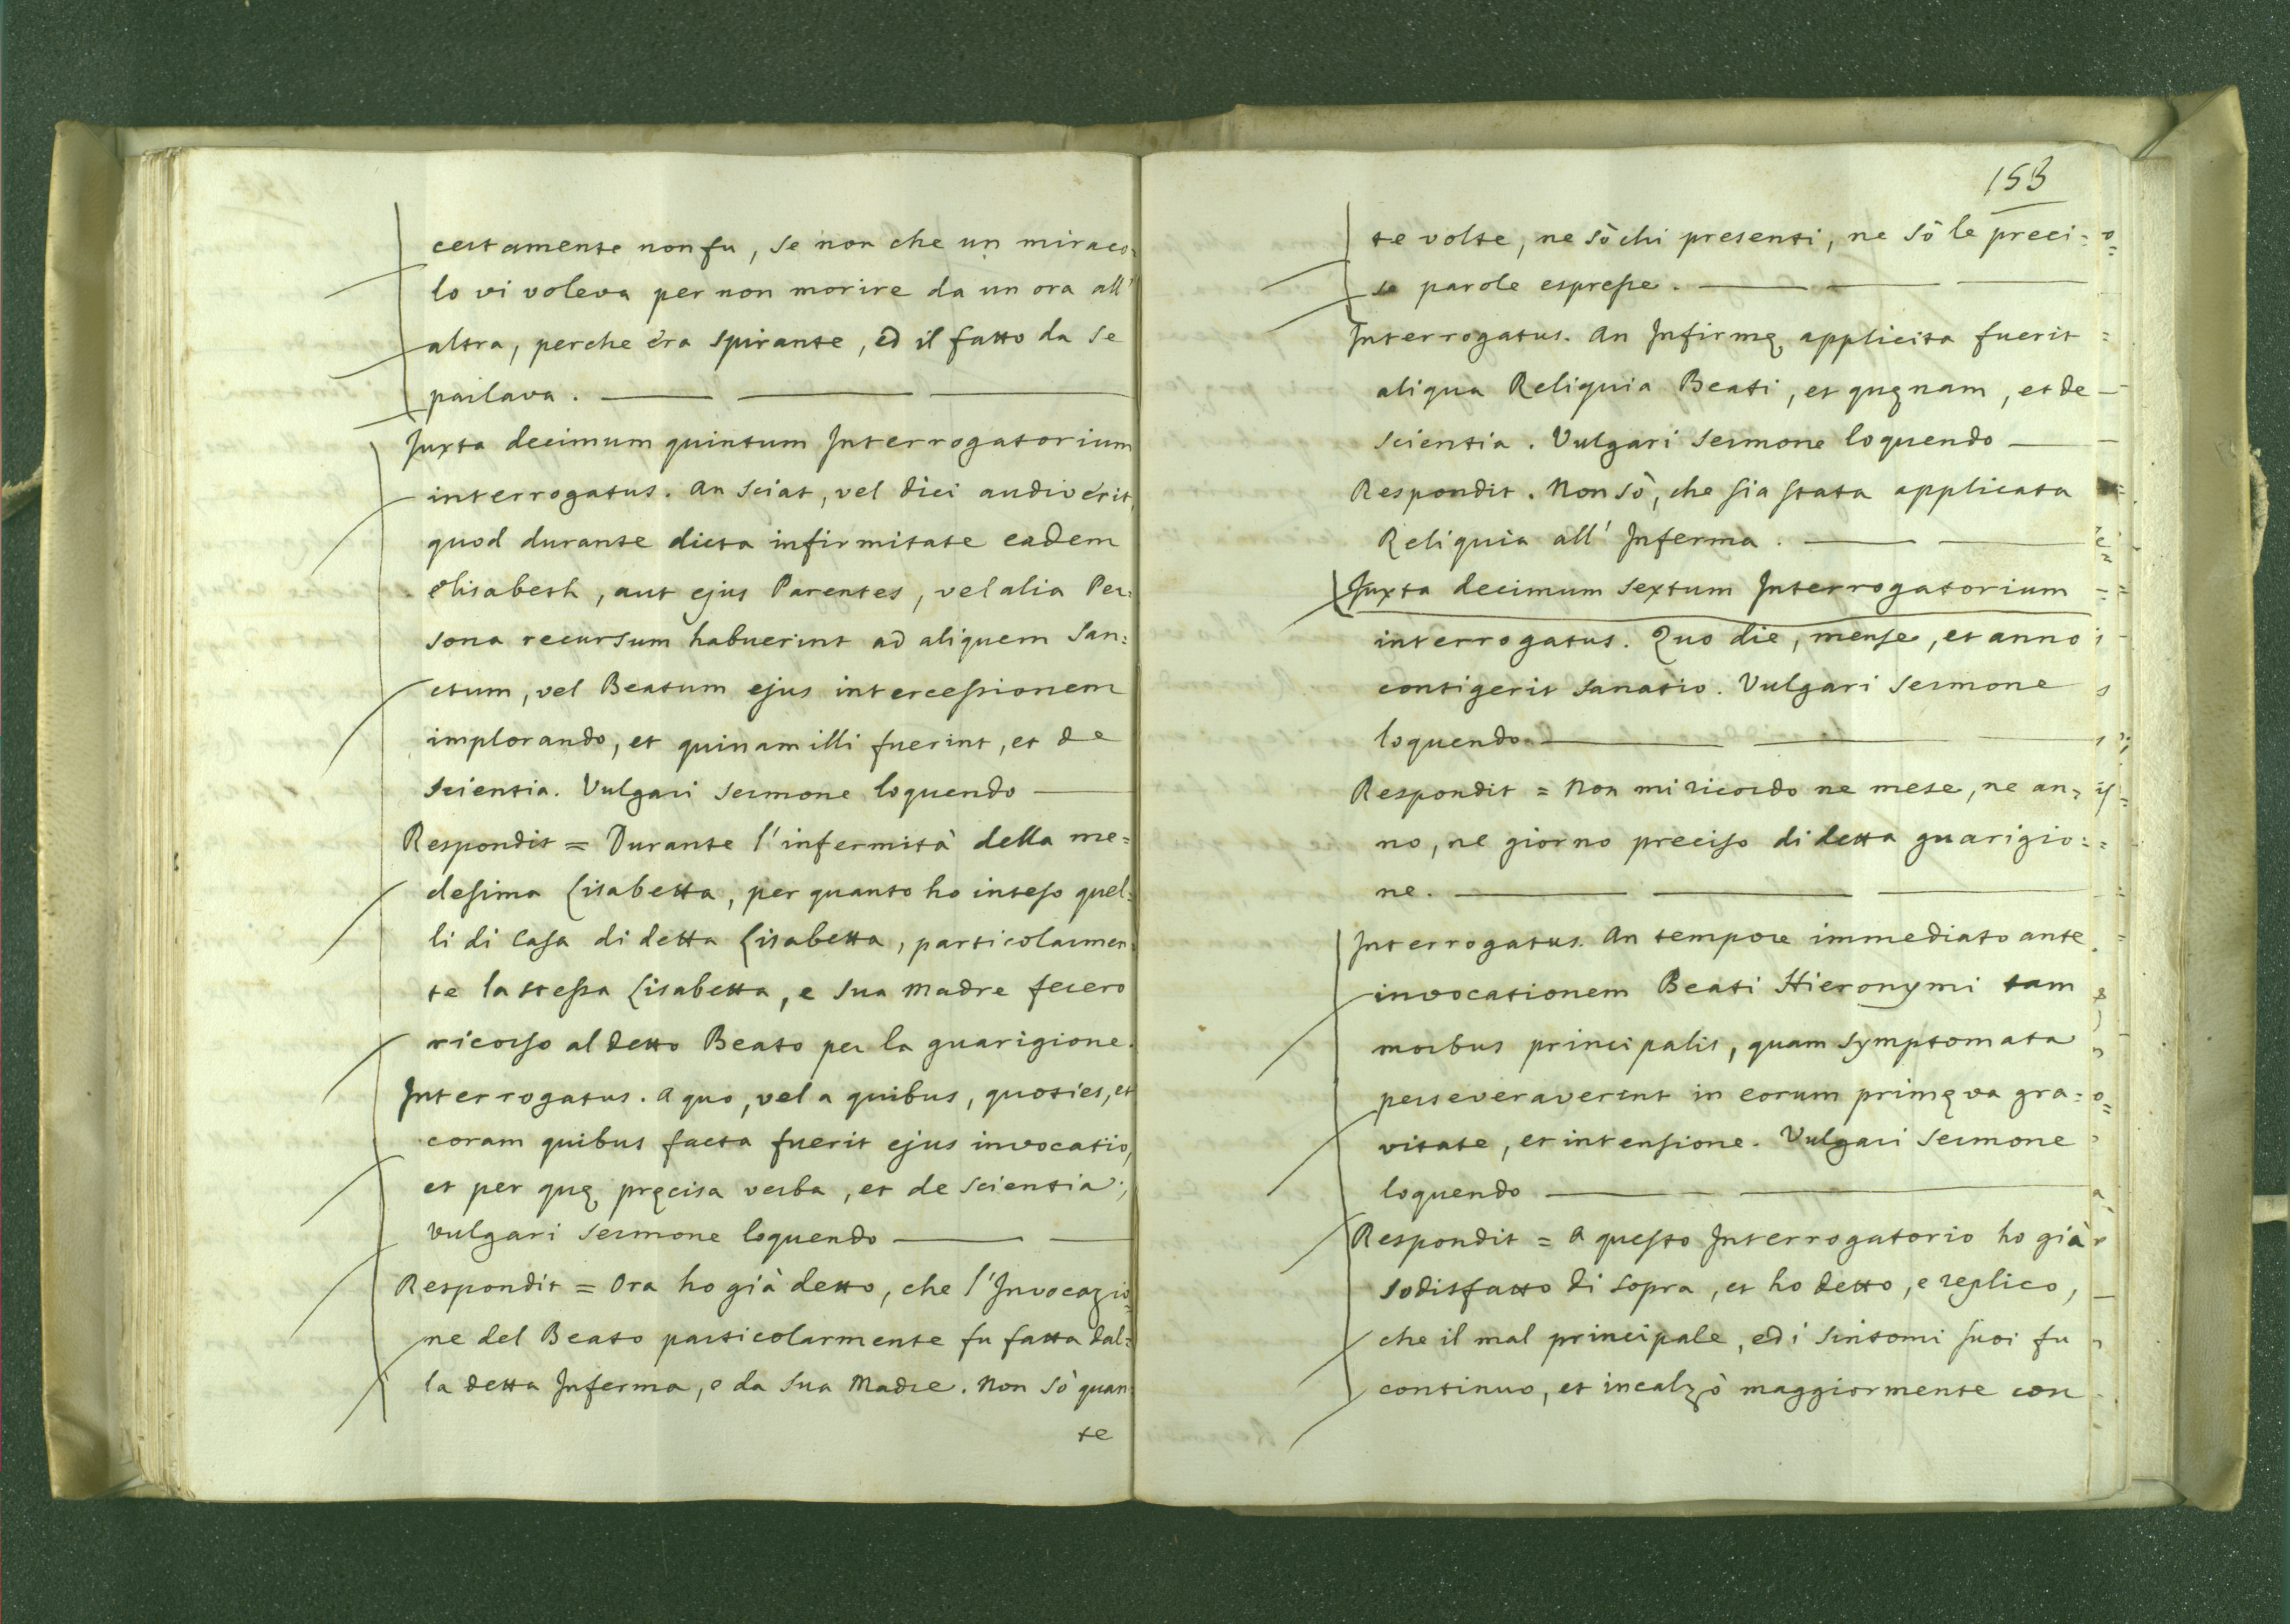 certamente non fu, se non che un miraco=
lo vi voleva per non morire da un ora all'
altra, perche era spirante, ed il fatto da se
parlava.
Juxta decimum quintum Interrogatorium
interrogatus. An sciat, vel dici audiverit,
quod durante dicta infirmitate eadem
Elisabeth, aut ejus Parentes, vel alia Per=
sona recursum habuerint ad aliquem San=
ctum, vel Beatum ejus intercessionem
implorando, et quinam illi fuerint, et de
scientia. Vulgari sermone loquendo
Respondit = Durante l'infermità della me=
desima Lisabetta, per quanto ho inteso quel=
li di Casa di detta Lisabetta, particolarmen=
te la stessa Lisabetta, e sua Madre fecero
ricorso al detto Beato per la guarigione.
Interrogatus. A quo, vel a quibus, quoties, et
coram quibus facta fuerit ejus invocatio,
et per quę pręcisa verba, et de scientia;
vulgari sermone loquendo
Respondit = Ora ho già detto, che l'Invocazio=
ne del Beato particolarmente fu fatta dal=
la detta Inferma, e da sua Madre. Non sò quan=
te
153
te volte, ne sò chi presenti, ne sò le preci=
se parole espresse.
Interrogatus. An Infirmę applicita fuerit
aliqua Reliquia Beati, et quęnam, et de
scientia. Vulgari sermone loquendo
Respondit. Non sò, che sia stata applicata
Reliquia all' Inferma.
Juxta decimum sextum Interrogatorium
interrogatus. Quo die, mense, et anno
contigerit sanatio. Vulgari sermone
loquendo
Respondit = Non mi ricordo ne mese, ne an=
no, ne giorno preciso di detta guarigio=
ne.
Interrogatus. An tempore immediato ante
invocationem Beati Hieronymi tam
morbus principalis, quam symptomata
perseveraverint in eorum primęva gra=
vitate, et intensione. Vulgari sermone
loquendo
Respondit = A questo Interrogatorio ho già
sodisfatto di sopra, et ho detto, e replico,
che il mal principale, ed i sintomi suoi fu
continuo, et incalzò maggiormente con